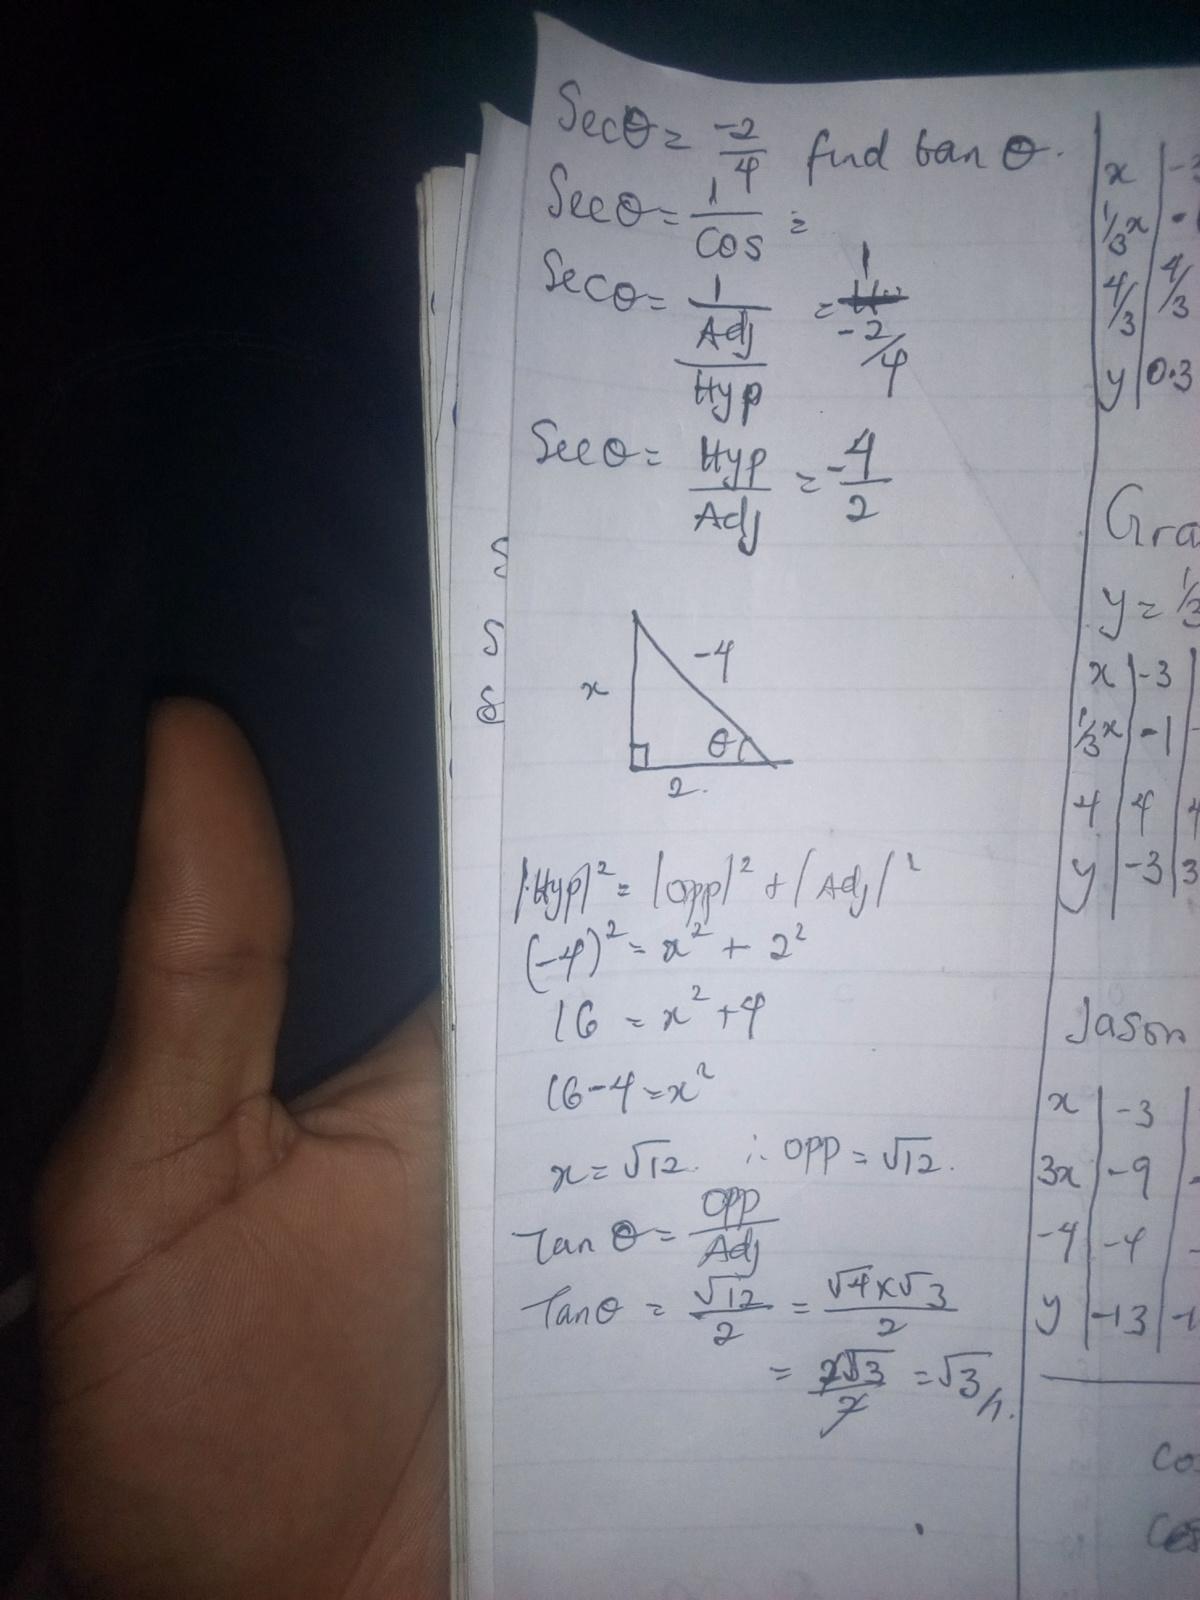 Secθ = -2/4 find tan θ.
Secθ = 1/Cos =
Secθ = 1/(Adj/Hyp) = 1/(-2/4)
Secθ = Hyp/Adj = -4/2
-4
x
θ
2.
|Hyp|² = |opp|² + |Adj|²
(-4)² = x² + 2²
16 = x² + 4
16-4 = x²
x = √12. ∴ opp = √12.
Tan θ = opp/Adj
Tanθ = √12/2 = √4x√3/2
= 2√3/2 = √3//.
x | -3
1/3x | -1
4/3 | 4/3
y | 0.3
y = 1/3
x | -3
1/3x | -1
4 | 4
y | -3 | 3
Jason
x | -3
3x | -9
-4 | -4
y | -13